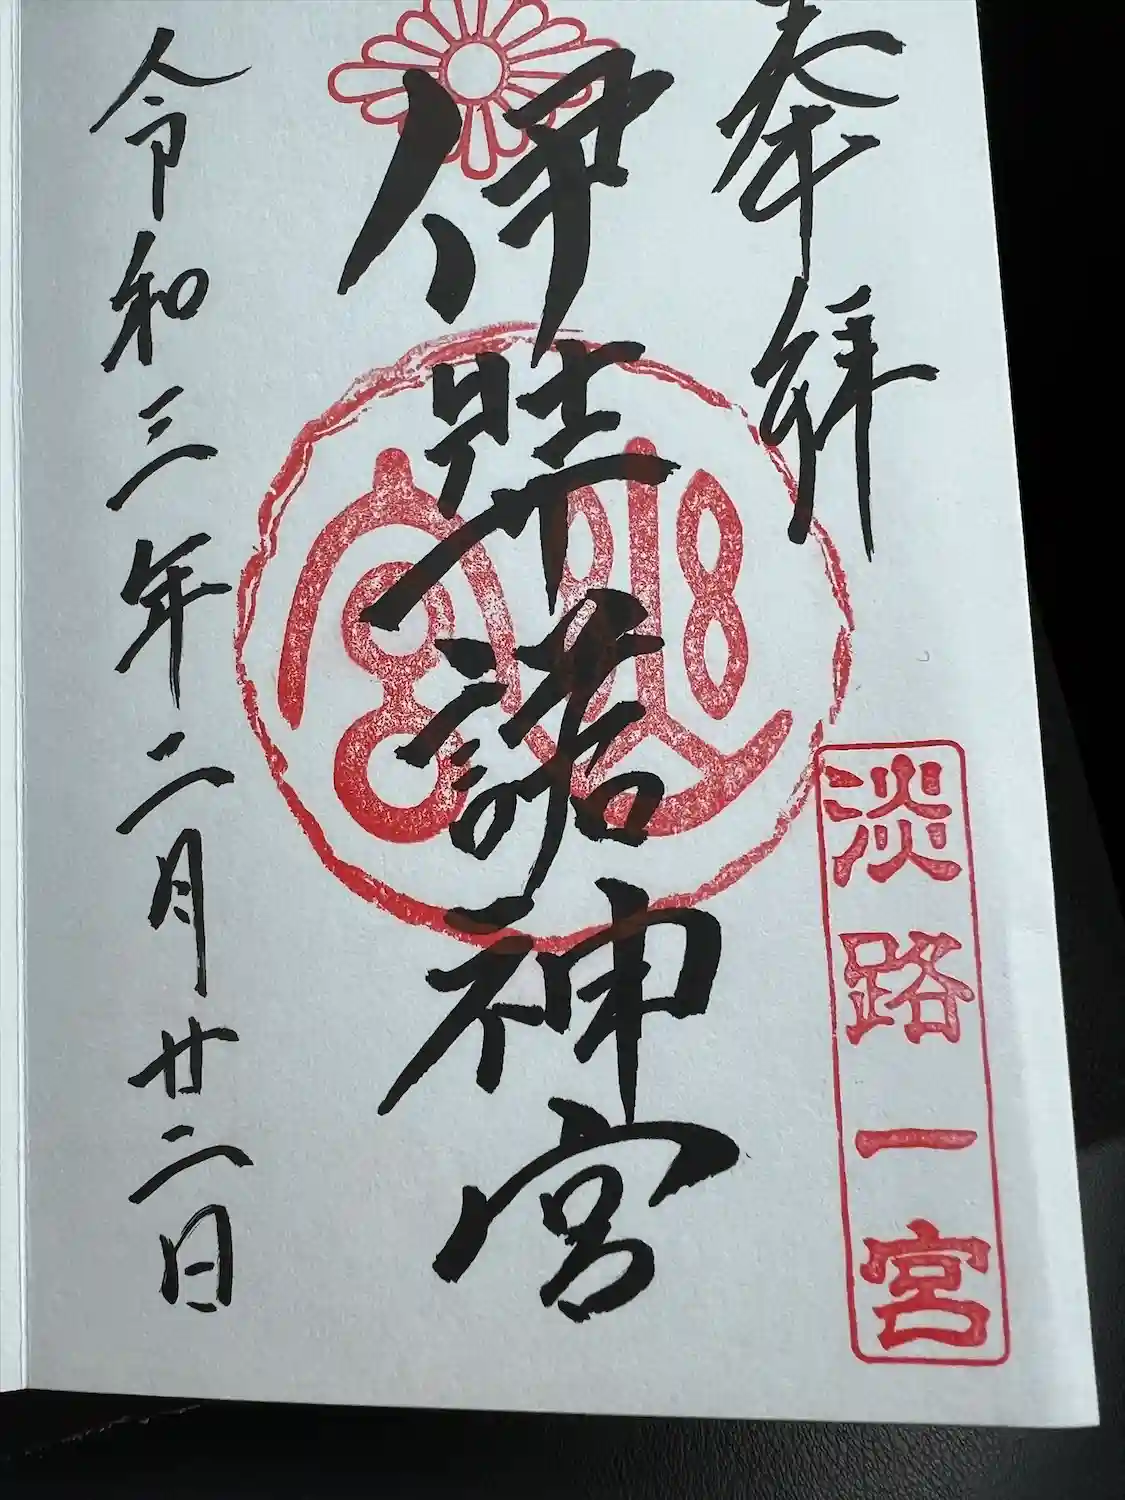 奉拝
淡路一宮
伊弉諾神宮
令和三年二月廿二日